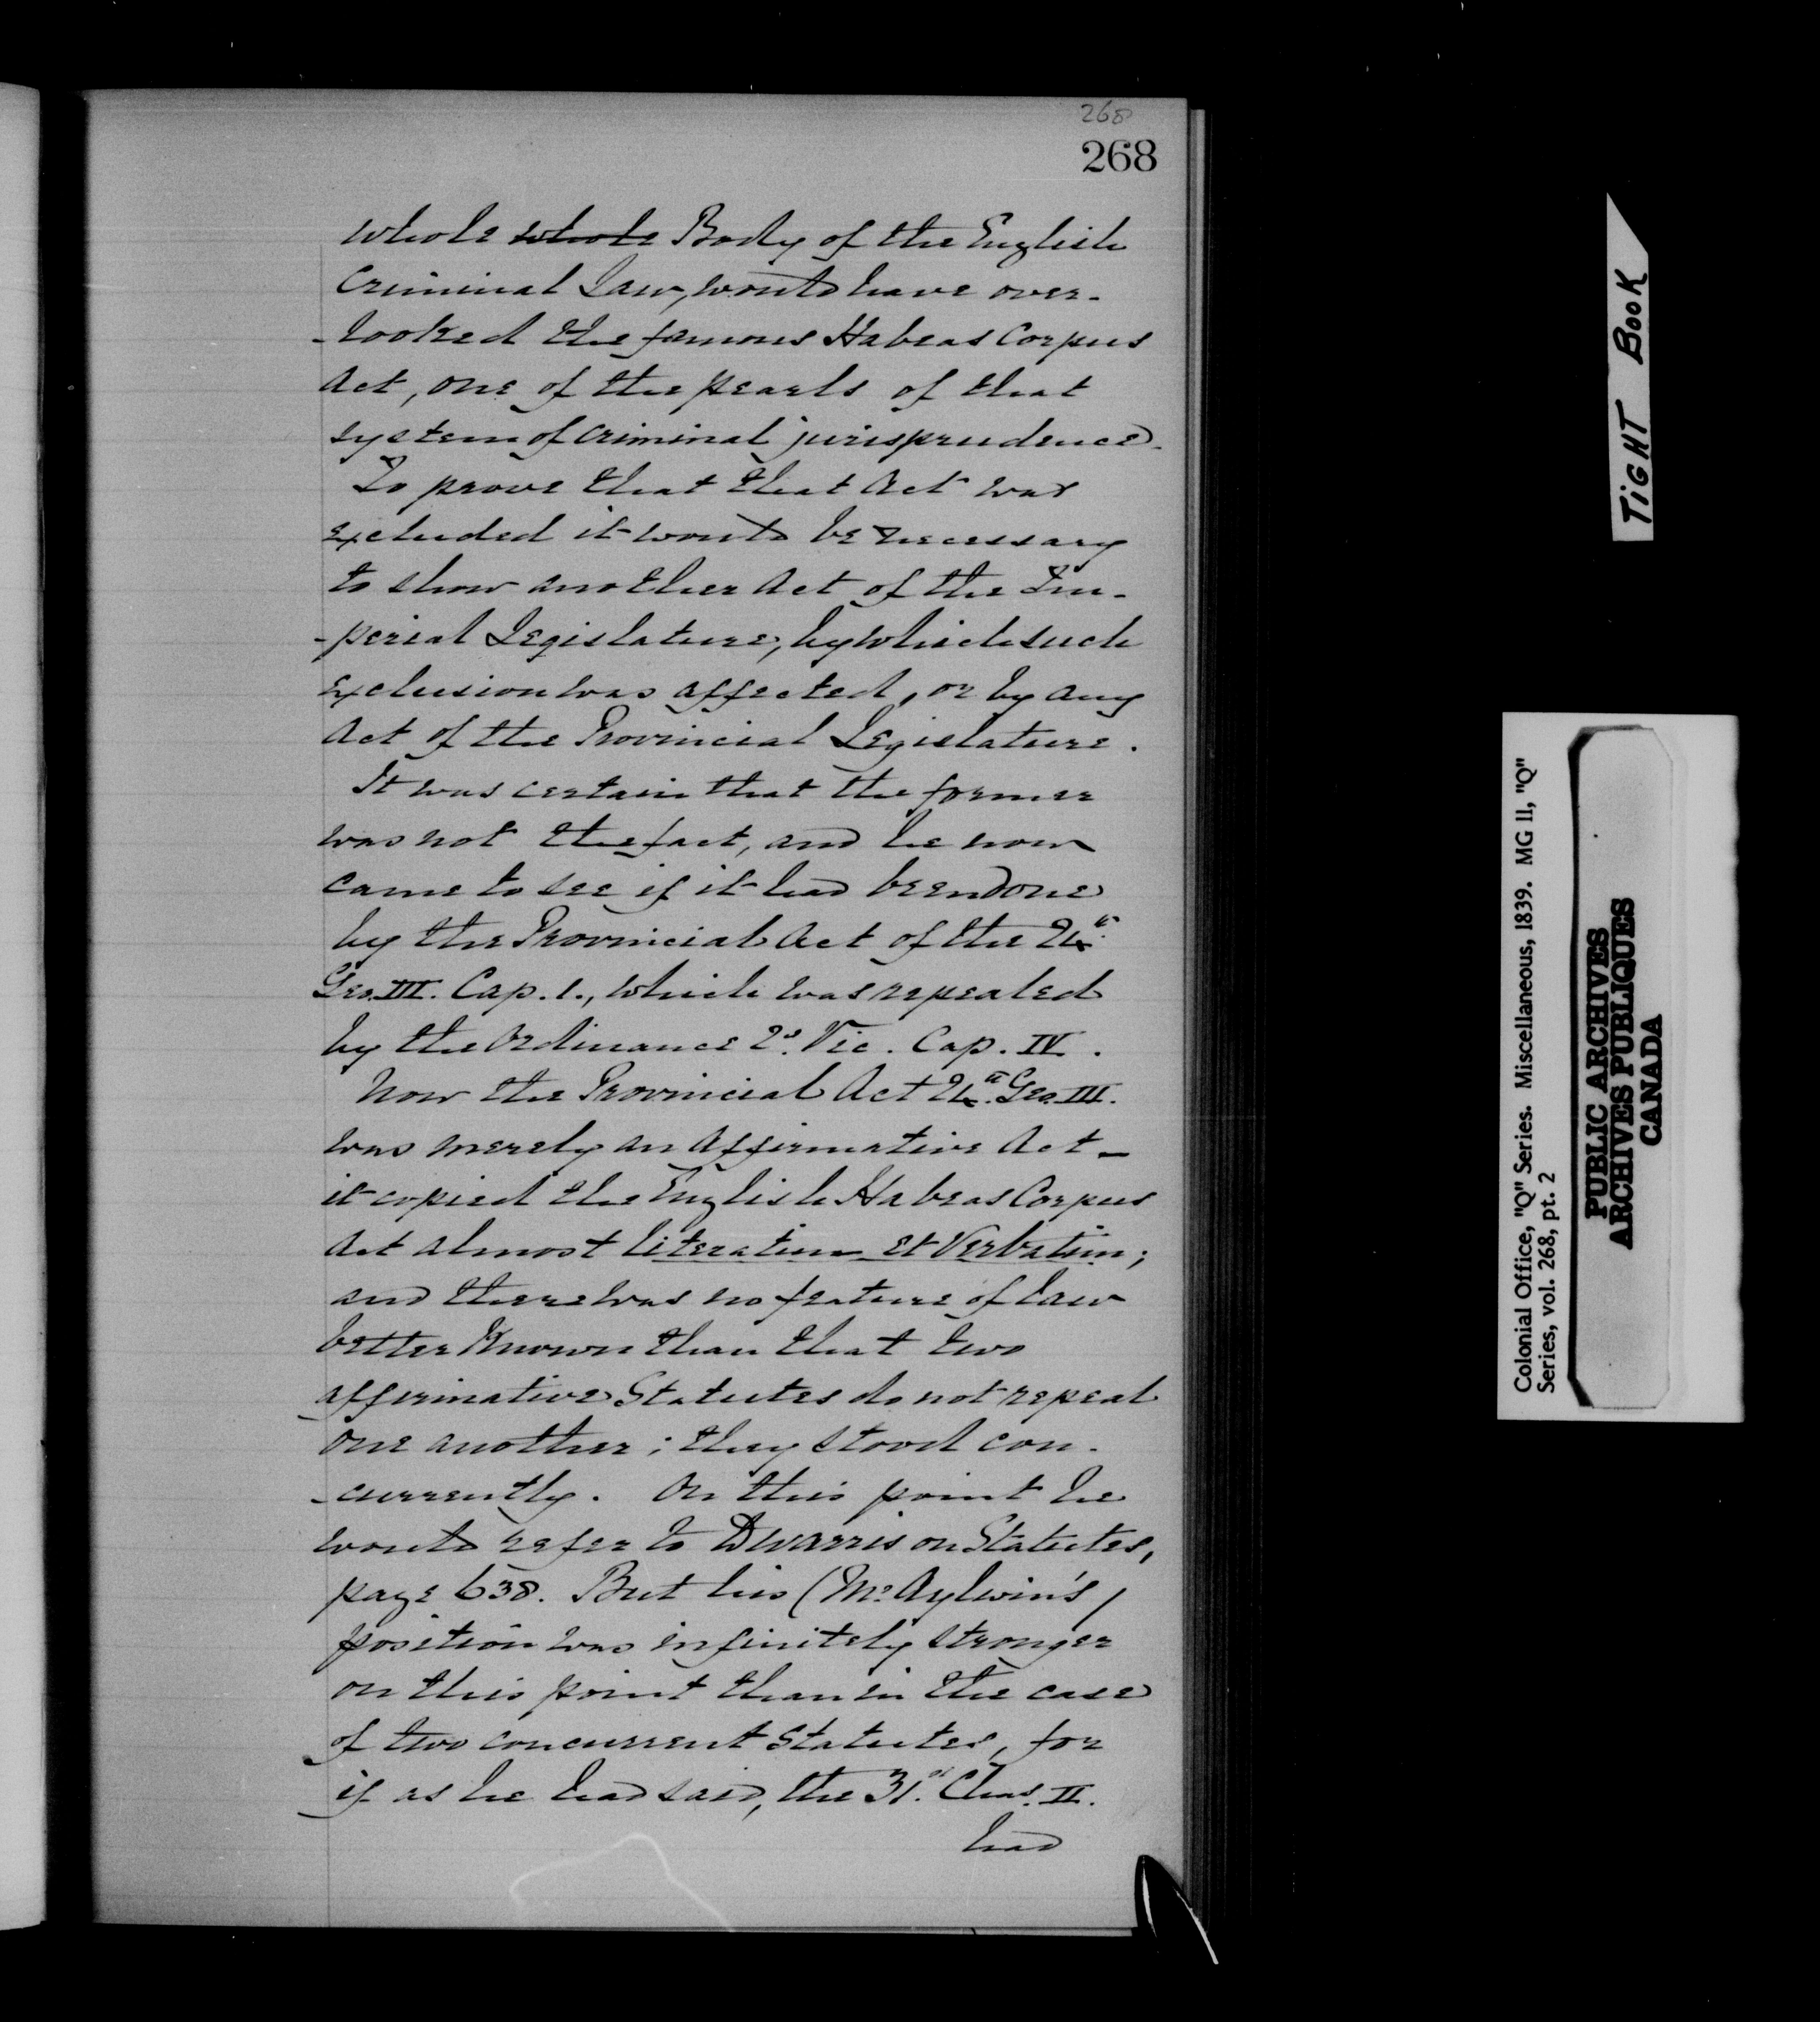 268
268
whole whole Body of the English
Criminal Law, would have over-
-looked the famous Habeas Corpus
Act, one of the pearls of that
system of criminal jurisprudence.
To prove that that Act was
excluded it would be necessary
to show another Act of the Im-
-perial Legislature, by which such
exclusion was affected, or by any
Act of the Provincial Legislature.
It was certain that the former
was not the fact, and he now
came to see if it had been done
by the Provincial Act of the 24th
Geo. III. Cap. 1., which was repealed
by the Ordinance 2d. Vic. Cap. IV.
Now the Provincial Act 24th. Geo. III.
was merely an affirmative Act—
it copied the English Habeas Corpus
Act almost literatim et Verbatim;
and there was no feature of law
better known than that two
affirmative Statutes do not repeal
one another; they stood con-
-currently. On this point he
would refer to Dwarris on Statutes,
page 638. But his (Mr. Aylwin's)
position was infinitely stronger
on this point than in the case
of two concurrent Statutes, for
if as he had said, the 31st. Chas. II.
had
TIGHT BOOK
Colonial Office, "Q" Series. Miscellaneous, 1839. MG 11, "Q"
Series, vol. 268, pt. 2
PUBLIC ARCHIVES
ARCHIVES PUBLIQUES
CANADA